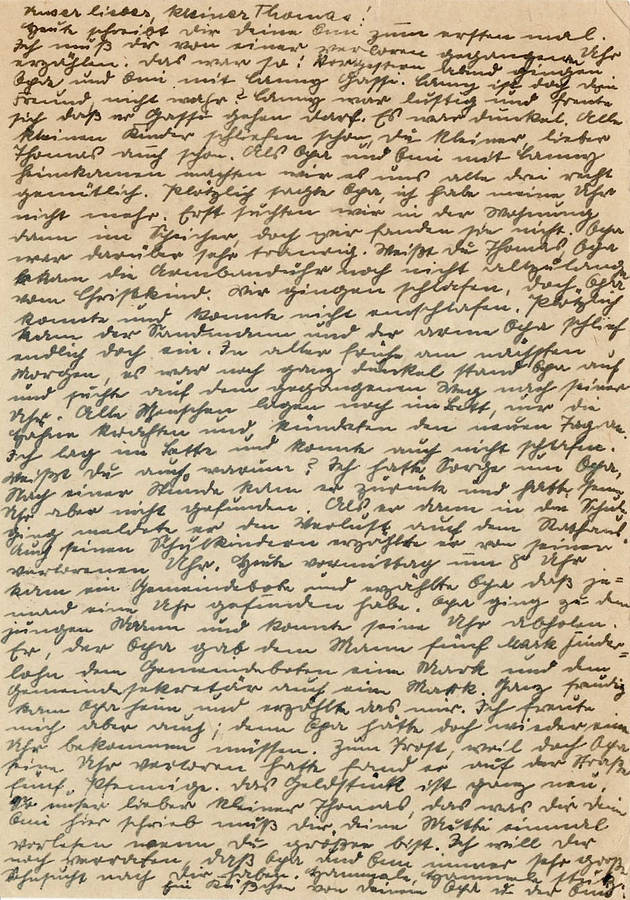 Unser lieber, kleiner Thomas!
Heute schreibt dir deine Omi zum ersten mal.
Ich muß dir von einer verloren gegangenen Uhr
erzählen. Das war so: Vorgestern Abend gingen
Opa und Omi mit Lanny Gassi. Lanny ist doch dein
Freund nicht wahr? Lanny war lustig und freute
sich daß er Gassi gehen darf. Es war dunkel. Alle
kleinen Kinder schliefen schon, du kleiner, lieber
Thomas auch schon. Als Opa und Omi mit Lanny
heimkamen machten wir es uns alle drei recht
gemütlich. Plötzlich sagte Opa, ich habe meine Uhr
nicht mehr. Erst suchten wir in der Wohnung
dann im Speicher, doch wir fanden sie nicht. Opa
war darüber sehr traurig. Weißt du Thomas, Opa
bekam die Armbanduhr noch nicht allzulange
vom Christkind. Wir gingen schlafen, doch Opa
konnte und konnte nicht einschlafen. Plötzlich
kam der Sandmann und der arme Opa schlief
endlich doch ein. In aller frühe am nächsten
Morgen, es war noch ganz dunkel stand Opa auf
und suchte auf dem gegangenen Weg nach seiner
Uhr. Alle Menschen lagen noch im Bett, nur die
Hähne krähten und kündeten den neuen Tag an.
Ich lag im Bette und konnte auch nicht schlafen.
Weißt du auch warum? Ich hatte Sorge um Opa,
Nach einer Stunde kam er zurück und hatte seine
Uhr aber nicht gefunden. Als er dann in die Schule
ging meldete er den Verlust auf dem Rathaus.
Auch seinen Schulkindern erzählte er von seiner
verlorenen Uhr. Heute vormittag um 8 Uhr
kam ein Gemeindebote und erzählte Opa daß je=
mand eine Uhr gefunden habe. Opa ging zu dem
jungen Mann und konnte seine Uhr abholen.
Er, der Opa gab dem Mann fünf Mark Finder=
lohn dem Gemeindeboten eine Mark und dem
Gemeindesekretär auch eine Mark. Ganz freudig
kam Opa heim und erzählte das mir. Ich freute
mich aber auch; denn Opa hätte doch wieder eine
Uhr bekommen müssen. Zum Trost, weil doch Opa
seine Uhr verloren hatte fand er auf der Straße
fünf Pfennige. Das Geldstück ist ganz neu.
unser lieber kleiner Thomas, das was dir die
Omi hier schrieb muß dir deine Mutti einmal
vorlesen wenn du größer bist. Ich will dir
noch verraten, daß Opa und Omi immer sehr große
Sehnsucht nach dir haben.
Ein Küßchen von deinem Opa u. der Omi.